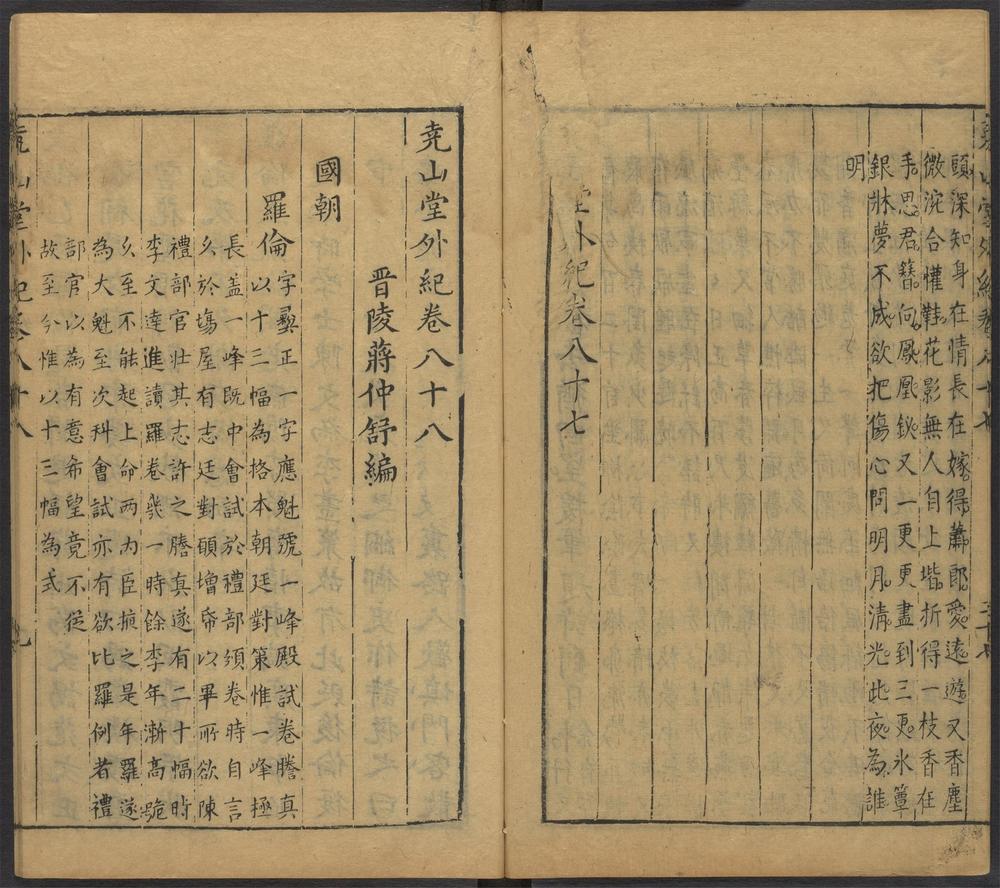 頭深知身在情長在嫁得蕭郎愛遠遊又香塵
微浣合懽鞋花影無人自上堦折得一枝香在
手思君簪向鳳凰釵又一更更盡到三更氷簟
銀牀夢不成欲把傷心問明月清光此夜為誰
明
堂外紀卷八十七
堯山堂外紀卷八十八
晋陵蔣仲舒編
國朝
羅倫字彛正一字應魁號一峰殿試卷謄真
以十三幅為格本朝廷對策惟一峰極
長盖一峰既中會試於禮部須卷時自言
乆於塲屋有志廷對頤增帋以畢所欲陳
禮部官壯其志許之謄真遂有二十幅時
李文達進讀羅卷幾一時餘李年漸高跪
乆至不能起上命两内臣掖之是年羅遂
為大魁至次科會試亦有欲比羅例者禮
部官以為有意希望竟不從
故至今惟以十三幅為式
堯山堂外紀卷八十八